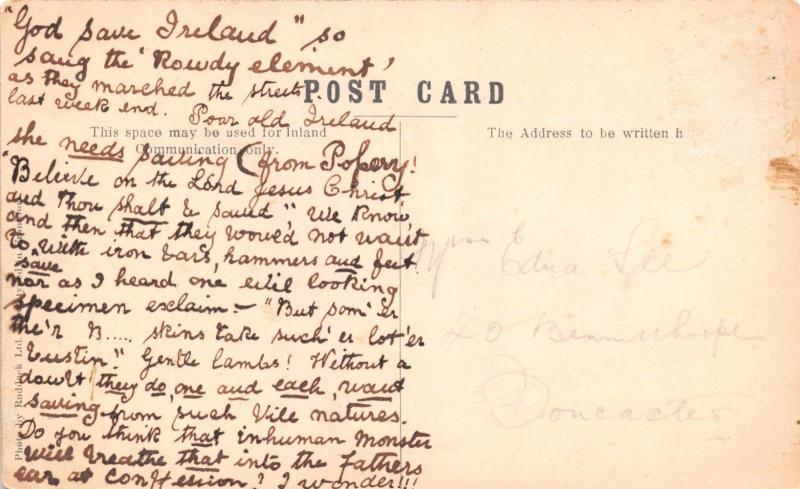 "God save Ireland" so
sang the 'Rowdy element'
as they marched the streets
last week end. Poor old Ireland
she needs saving (from Popery!
"Believe on the Lord Jesus Christ
and thou shalt be saved" We Know,
and then that they would not want
to save with iron bars, hammers and feet.
nor as I heard one evil looking
specimen exclaim:- "But som' er
the'r B..... skins take such' er lot'er
bustin." Gentle lambs! Without a
doubt they do, one and each, want
saving from such Vile natures.
Do you think that inhuman Monster
will breathe that into the fathers
ear at Confession? I wonder!!!
POST CARD
This space may be used for Inland
Communication only.
The Address to be written h
Photo by Ruddock Ltd.
Miss E
Edna Lee
20 Bennethorpe
Doncaster